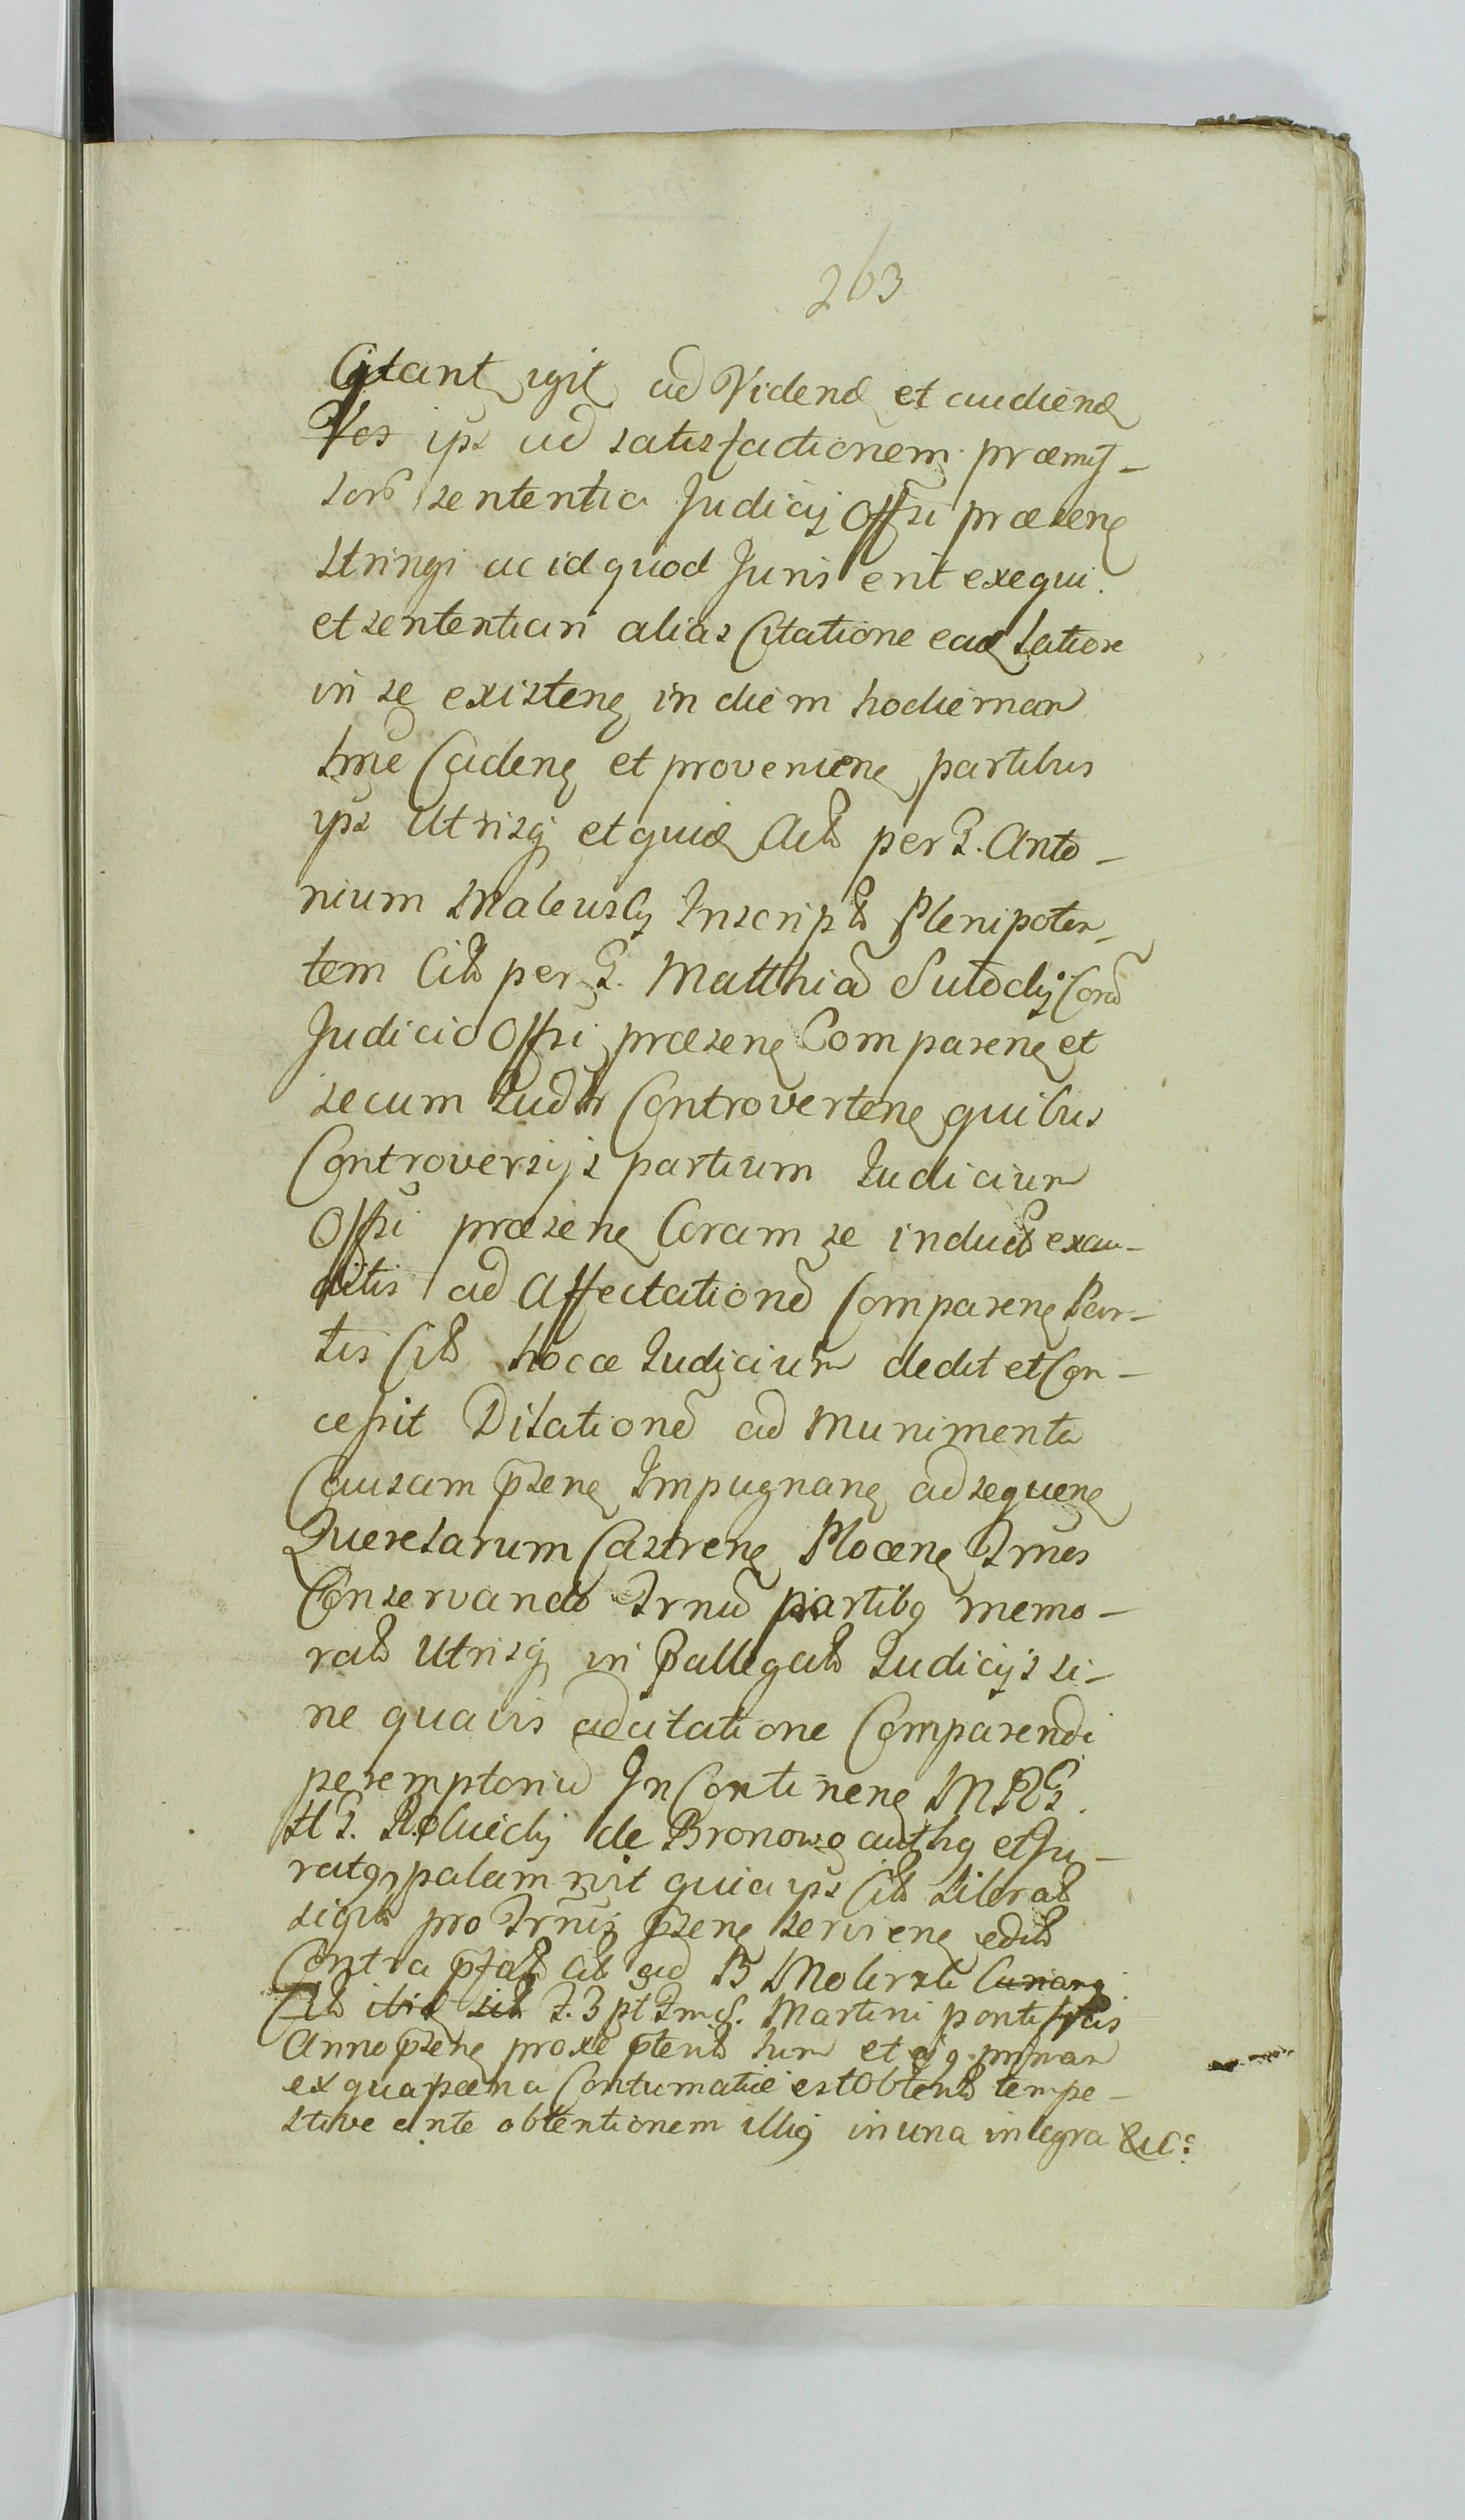 263
Citant igit ad Vidend et audiend
Vos ips ad satisfactionem præmis-
sorũ sententia Judicij Offsi præsene
stringi ac id quod Juris erit exequi.
et sententiari alias Citatione ead latiore
in se existene in diem hodiernam
tme Cadene et proveniene partibus
ips Utrisq et quid Acto per G. Anto-
nium Maleusky Inscripto Plenipoten-
tem Cito per G. Matthiã Sutocky Corã
Judicio Offsi præsene Comparene et
secum Judtr Controvertene quibus
Controversijs partium Judicium
Offsi præsene Coram se inducto exau-
ditis ad Affectationẽ Comparene Par-
tis Cito hocce Judicium dedit et Con-
cessit Dilationẽ ad Munimenta
Causam p̃sene Impugnane ad sequene
Querelarum Castrene Plocene Trnos
Conservando Trnũ partibq memo-
rato Utrisq in p̃allegato Judicijs si-
ne quavis adcitatione Comparendi
peremptoriũ In Continene MRG.
H G. de Bronowo authq et Ju-
ratq palam rvit quia ips Cito Liberato
sigto pro Trnis p̃sene serviene edito
Contra p̃fato Cito ad
Martini pontificis
Anno p̃sene proxe p̃terito tum et primam
ex qua pæna Contumatiæ est Obtento tempe-
stive ante obtentionem illiq in una integra &c: